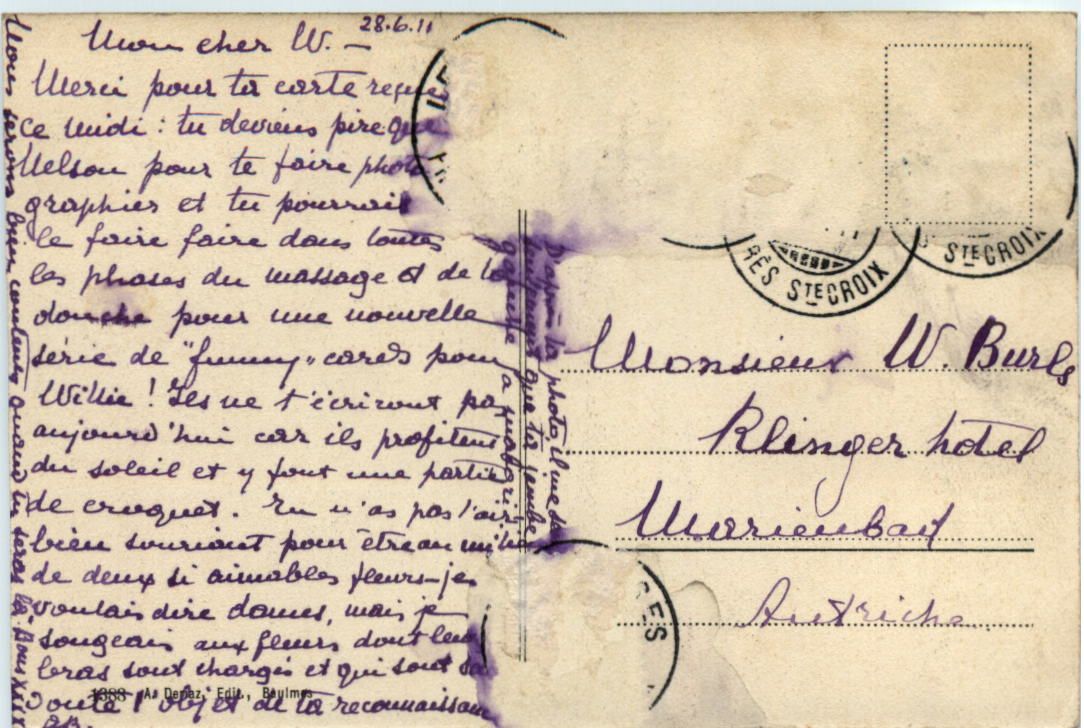 28.6.11
Mon cher W. –
Merci pour ta carte reçue
ce midi : tu deviens pire que
Nelson pour te faire photo
graphier et tu pourrais
le faire faire dans toutes
les phases du massage et de la
douche pour une nouvelle
série de "funny" cards pour
Willie ! Ils ne t'écriront pas
aujourd'hui car ils profitent
du soleil et y font une partie
de croquet. Tu n'as pas l'air
bien souriant pour être au milieu
de deux si aimables fleurs – je
voulais dire dames, mais je
songeais aux fleurs dont leurs
bras sont chargés et qui sont sans
doute l'objet de ta reconnaissance
Nous serons bien contents quand tu seras là. Bons
D'après la photo, il me
que ta jambe
gauche a
1388 A. Depaz, Edit., Baulmes
STE CROIX
RÈS STE CROIX
Monsieur W. Burls
Klinger hotel
Marienbad
Autriche